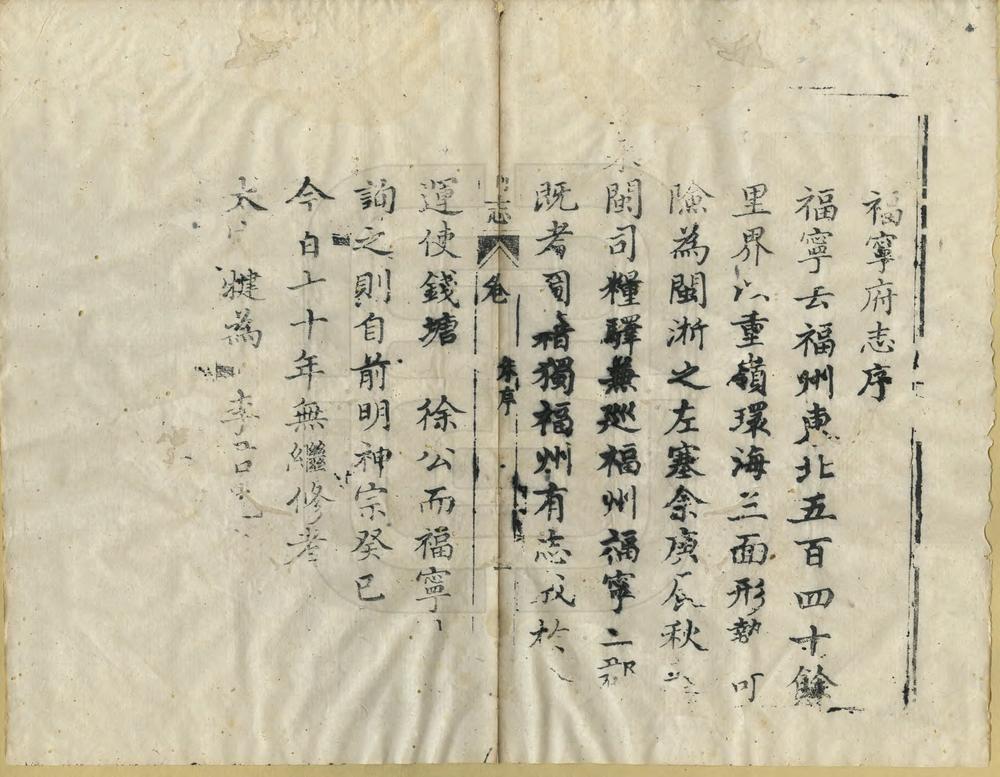 福寧府志序
福寧去福州東北五百四十餘
里界以重嶺環海三面形勢可
險為閩浙之左塞余庚辰秋
閩司糧驛兼巡福州福寧二郡
既者獨福州有志成於
志
卷
朱序
運使錢塘 徐公而福寧
詢之則自前明神宗癸巳
今百十年無繼修者
太 犍為 李